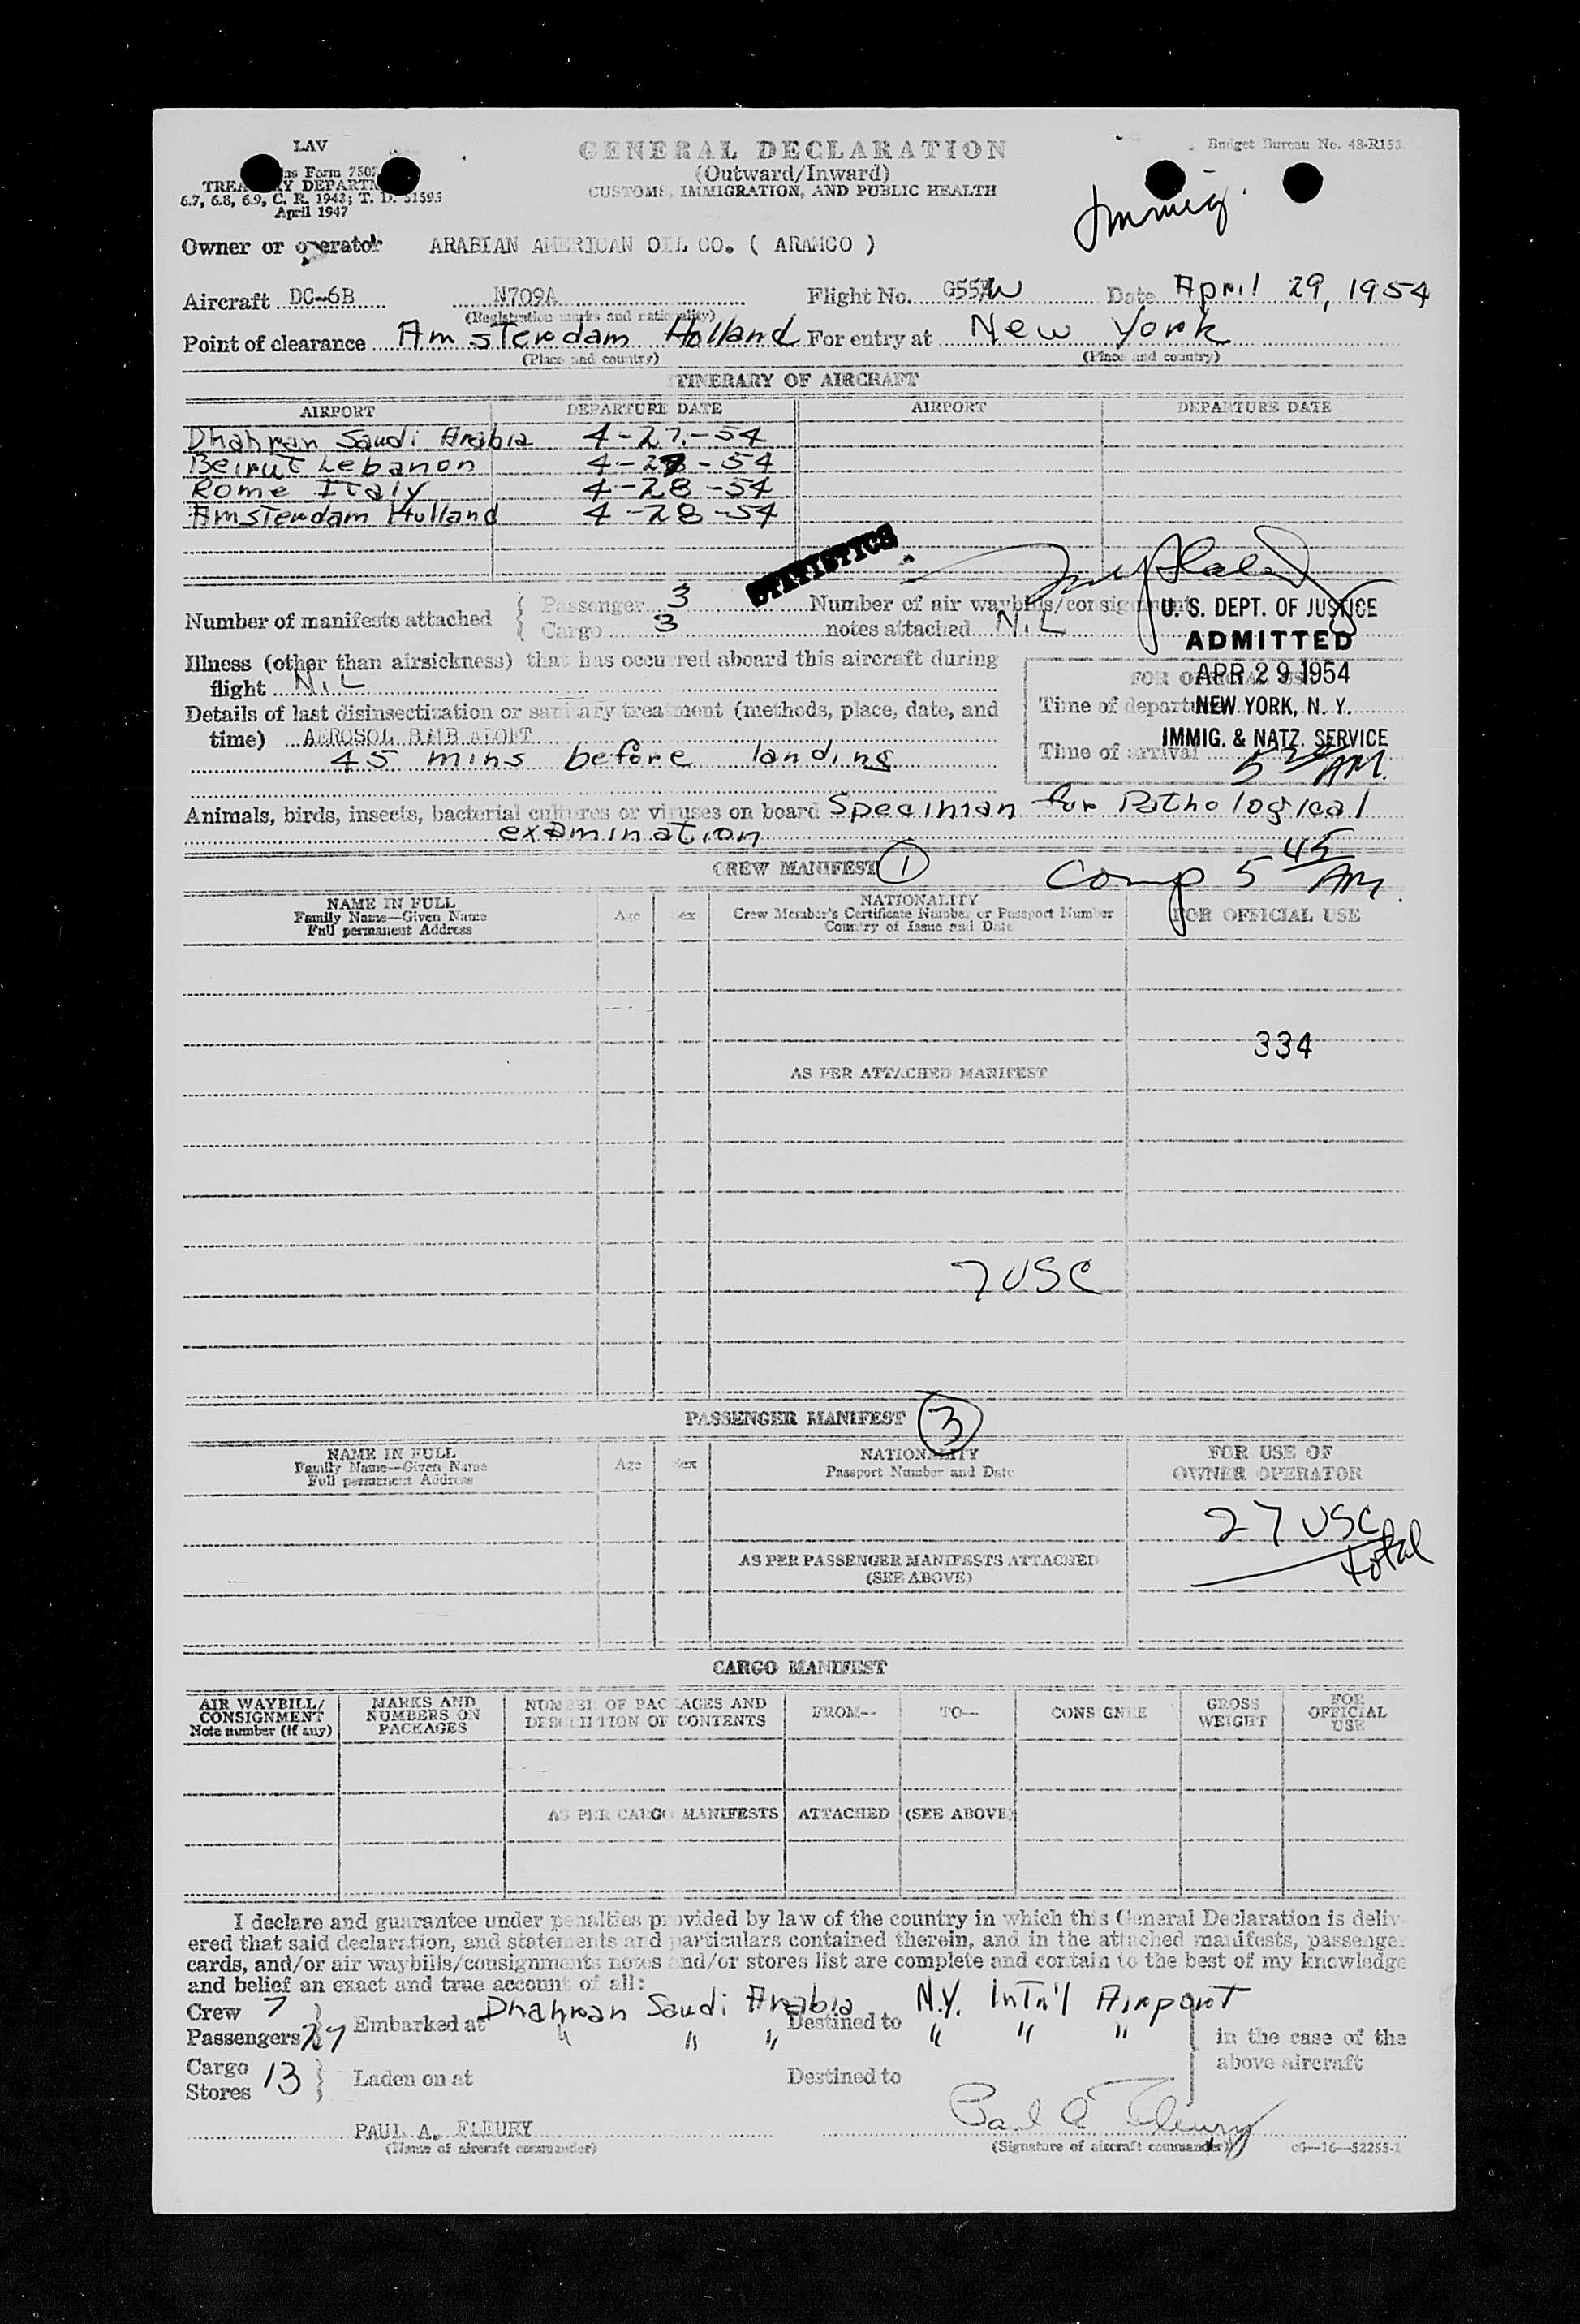 LAV
GENERAL DECLARATION
Budget Bureau No. 48-R153
(Outward/Inward)
CUSTOMS, IMMIGRATION, AND PUBLIC HEALTH
6.7, 6.8, 6.9, C. R. 1943; T. D. 51595
April 1947
Immig.
Owner or operator ARABIAN AMERICAN OIL CO. ( ARAMCO )
Aircraft DC-6B N709A Flight No. Date April 29, 1954
(Registration marks and nationality)
Point of clearance Amsterdam Holland For entry at New York
(Place and country) (Place and country)
ITINERARY OF AIRCRAFT
AIRPORT DEPARTURE DATE AIRPORT DEPARTURE DATE
Dhahran Saudi Arabia 4-27-54
Beirut Lebanon 4-27-54
Rome Italy 4-28-54
Amsterdam Holland 4-28-54
STATISTICS
Number of manifests attached { Passenger 3 Number of air waybills/consignment
Cargo 3 notes attached NiL
U. S. DEPT. OF JUSTICE
ADMITTED
APR 29 1954
NEW YORK, N. Y.
IMMIG. & NATZ. SERVICE
Illness (other than airsickness) that has occurred aboard this aircraft during
flight NiL
FOR OFFICIAL USE
Details of last disinsectization or sanitary treatment (methods, place, date, and
time) AEROSOL BMB ALOFT
45 mins before landing
Time of departure
Time of arrival 5 AM
Animals, birds, insects, bacterial cultures or viruses on board Speciman for Pathological
examination
CREW MANIFEST 1
Comp 5 45 AM
NAME IN FULL
Family Name—Given Name
Full permanent Address
Age Sex
NATIONALITY
Crew Member's Certificate Number or Passport Number
Country of Issue and Date
FOR OFFICIAL USE
334
AS PER ATTACHED MANIFEST
7 USC
PASSENGER MANIFEST 3
NAME IN FULL
Family Name—Given Name
Full permanent Address
Age Sex
NATIONALITY
Passport Number and Date
FOR USE OF
OWNER OPERATOR
27 USC
total
AS PER PASSENGER MANIFESTS ATTACHED
(SEE ABOVE)
CARGO MANIFEST
AIR WAYBILL/
CONSIGNMENT
Note number (if any)
MARKS AND
NUMBERS ON
PACKAGES
NUMBER OF PACKAGES AND
DESCRIPTION OF CONTENTS
FROM--
TO--
CONSIGNEE
GROSS
WEIGHT
FOR
OFFICIAL
USE
AS PER CARGO MANIFESTS ATTACHED (SEE ABOVE)
I declare and guarantee under penalties provided by law of the country in which this General Declaration is deliv-
ered that said declaration, and statements and particulars contained therein, and in the attached manifests, passenger
cards, and/or air waybills/consignments notes and/or stores list are complete and contain to the best of my knowledge
and belief an exact and true account of all:
Crew 7 } Embarked at Dhahran Saudi Arabia Destined to N.Y. Int'l Airport
Passengers 27 " " " " " "
in the case of the
above aircraft
Cargo 13 } Laden on at Destined to
Stores
PAUL A. FLEURY Paul A Fleury
(Name of aircraft commander) (Signature of aircraft commander) c6—16—52255-1